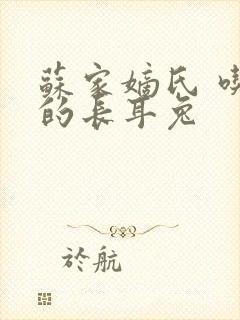 蘇家嫡氏 喫
的長耳兔
於航